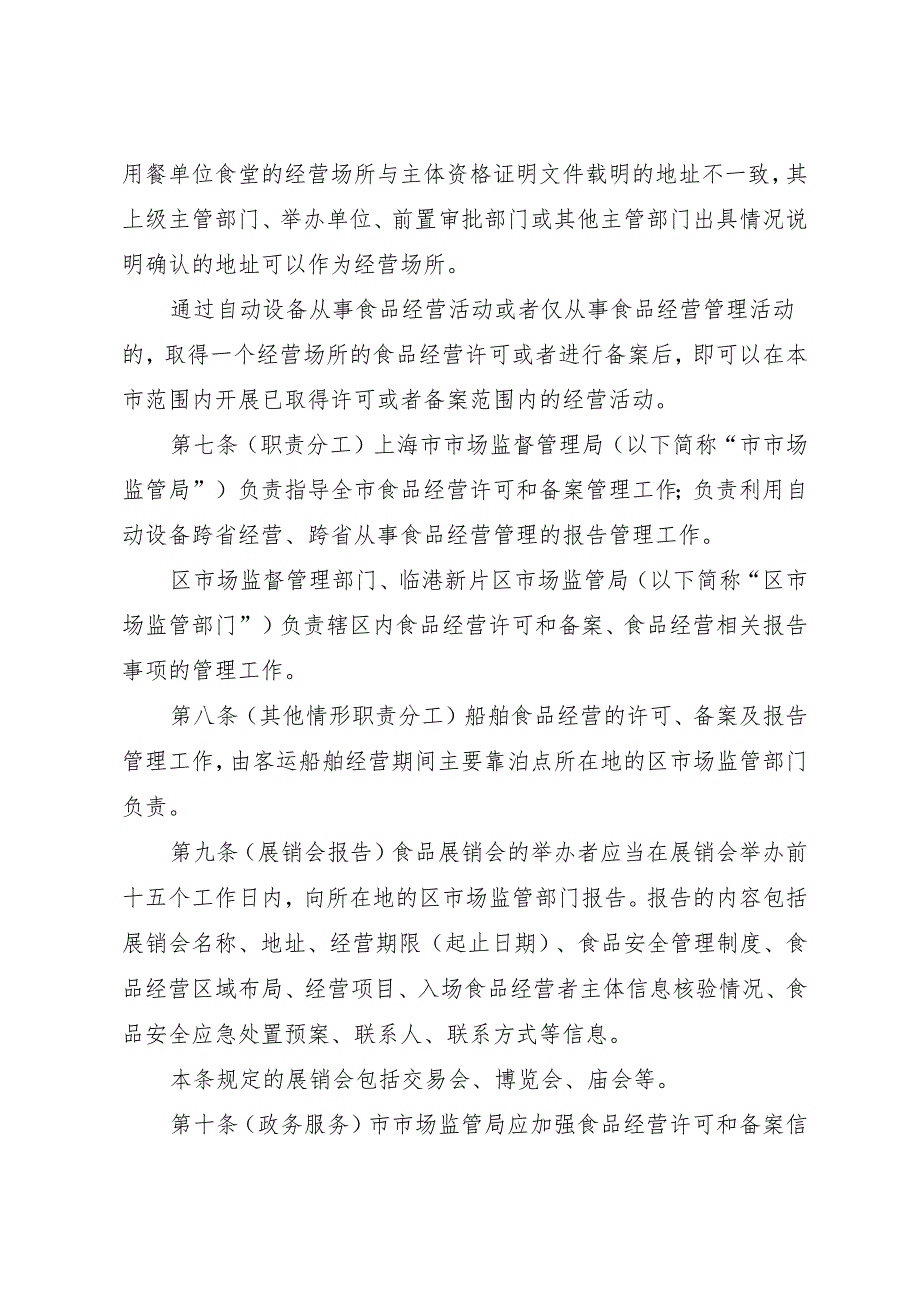 用餐单位食堂的经营场所与主体资格证明文件载明的地址不一致，其
上级主管部门、举办单位、前置审批部门或其他主管部门出具情况说
明确认的地址可以作为经营场所。
通过自动设备从事食品经营活动或者仅从事食品经营管理活动
的，取得一个经营场所的食品经营许可或者进行备案后，即可以在本
市范围内开展已取得许可或者备案范围内的经营活动。
第七条（职责分工）上海市市场监督管理局（以下简称“市市场
监管局”）负责指导全市食品经营许可和备案管理工作;负责利用自
动设备跨省经营、跨省从事食品经营管理的报告管理工作。
区市场监督管理部门、临港新片区市场监管局（以下简称“区市
场监管部门”）负责辖区内食品经营许可和备案、食品经营相关报告
事项的管理工作。
第八条（其他情形职责分工）船舶食品经营的许可、备案及报告
管理工作，由客运船舶经营期间主要靠泊点所在地的区市场监管部门
负责。
第九条（展销会报告）食品展销会的举办者应当在展销会举办前
十五个工作日内，向所在地的区市场监管部门报告。报告的内容包括
展销会名称、地址、经营期限（起止日期）、食品安全管理制度、食
品经营区域布局、经营项目、入场食品经营者主体信息核验情况、食
品安全应急处置预案、联系人、联系方式等信息。
本条规定的展销会包括交易会、博览会、庙会等。
第十条（政务服务）市市场监管局应加强食品经营许可和备案信